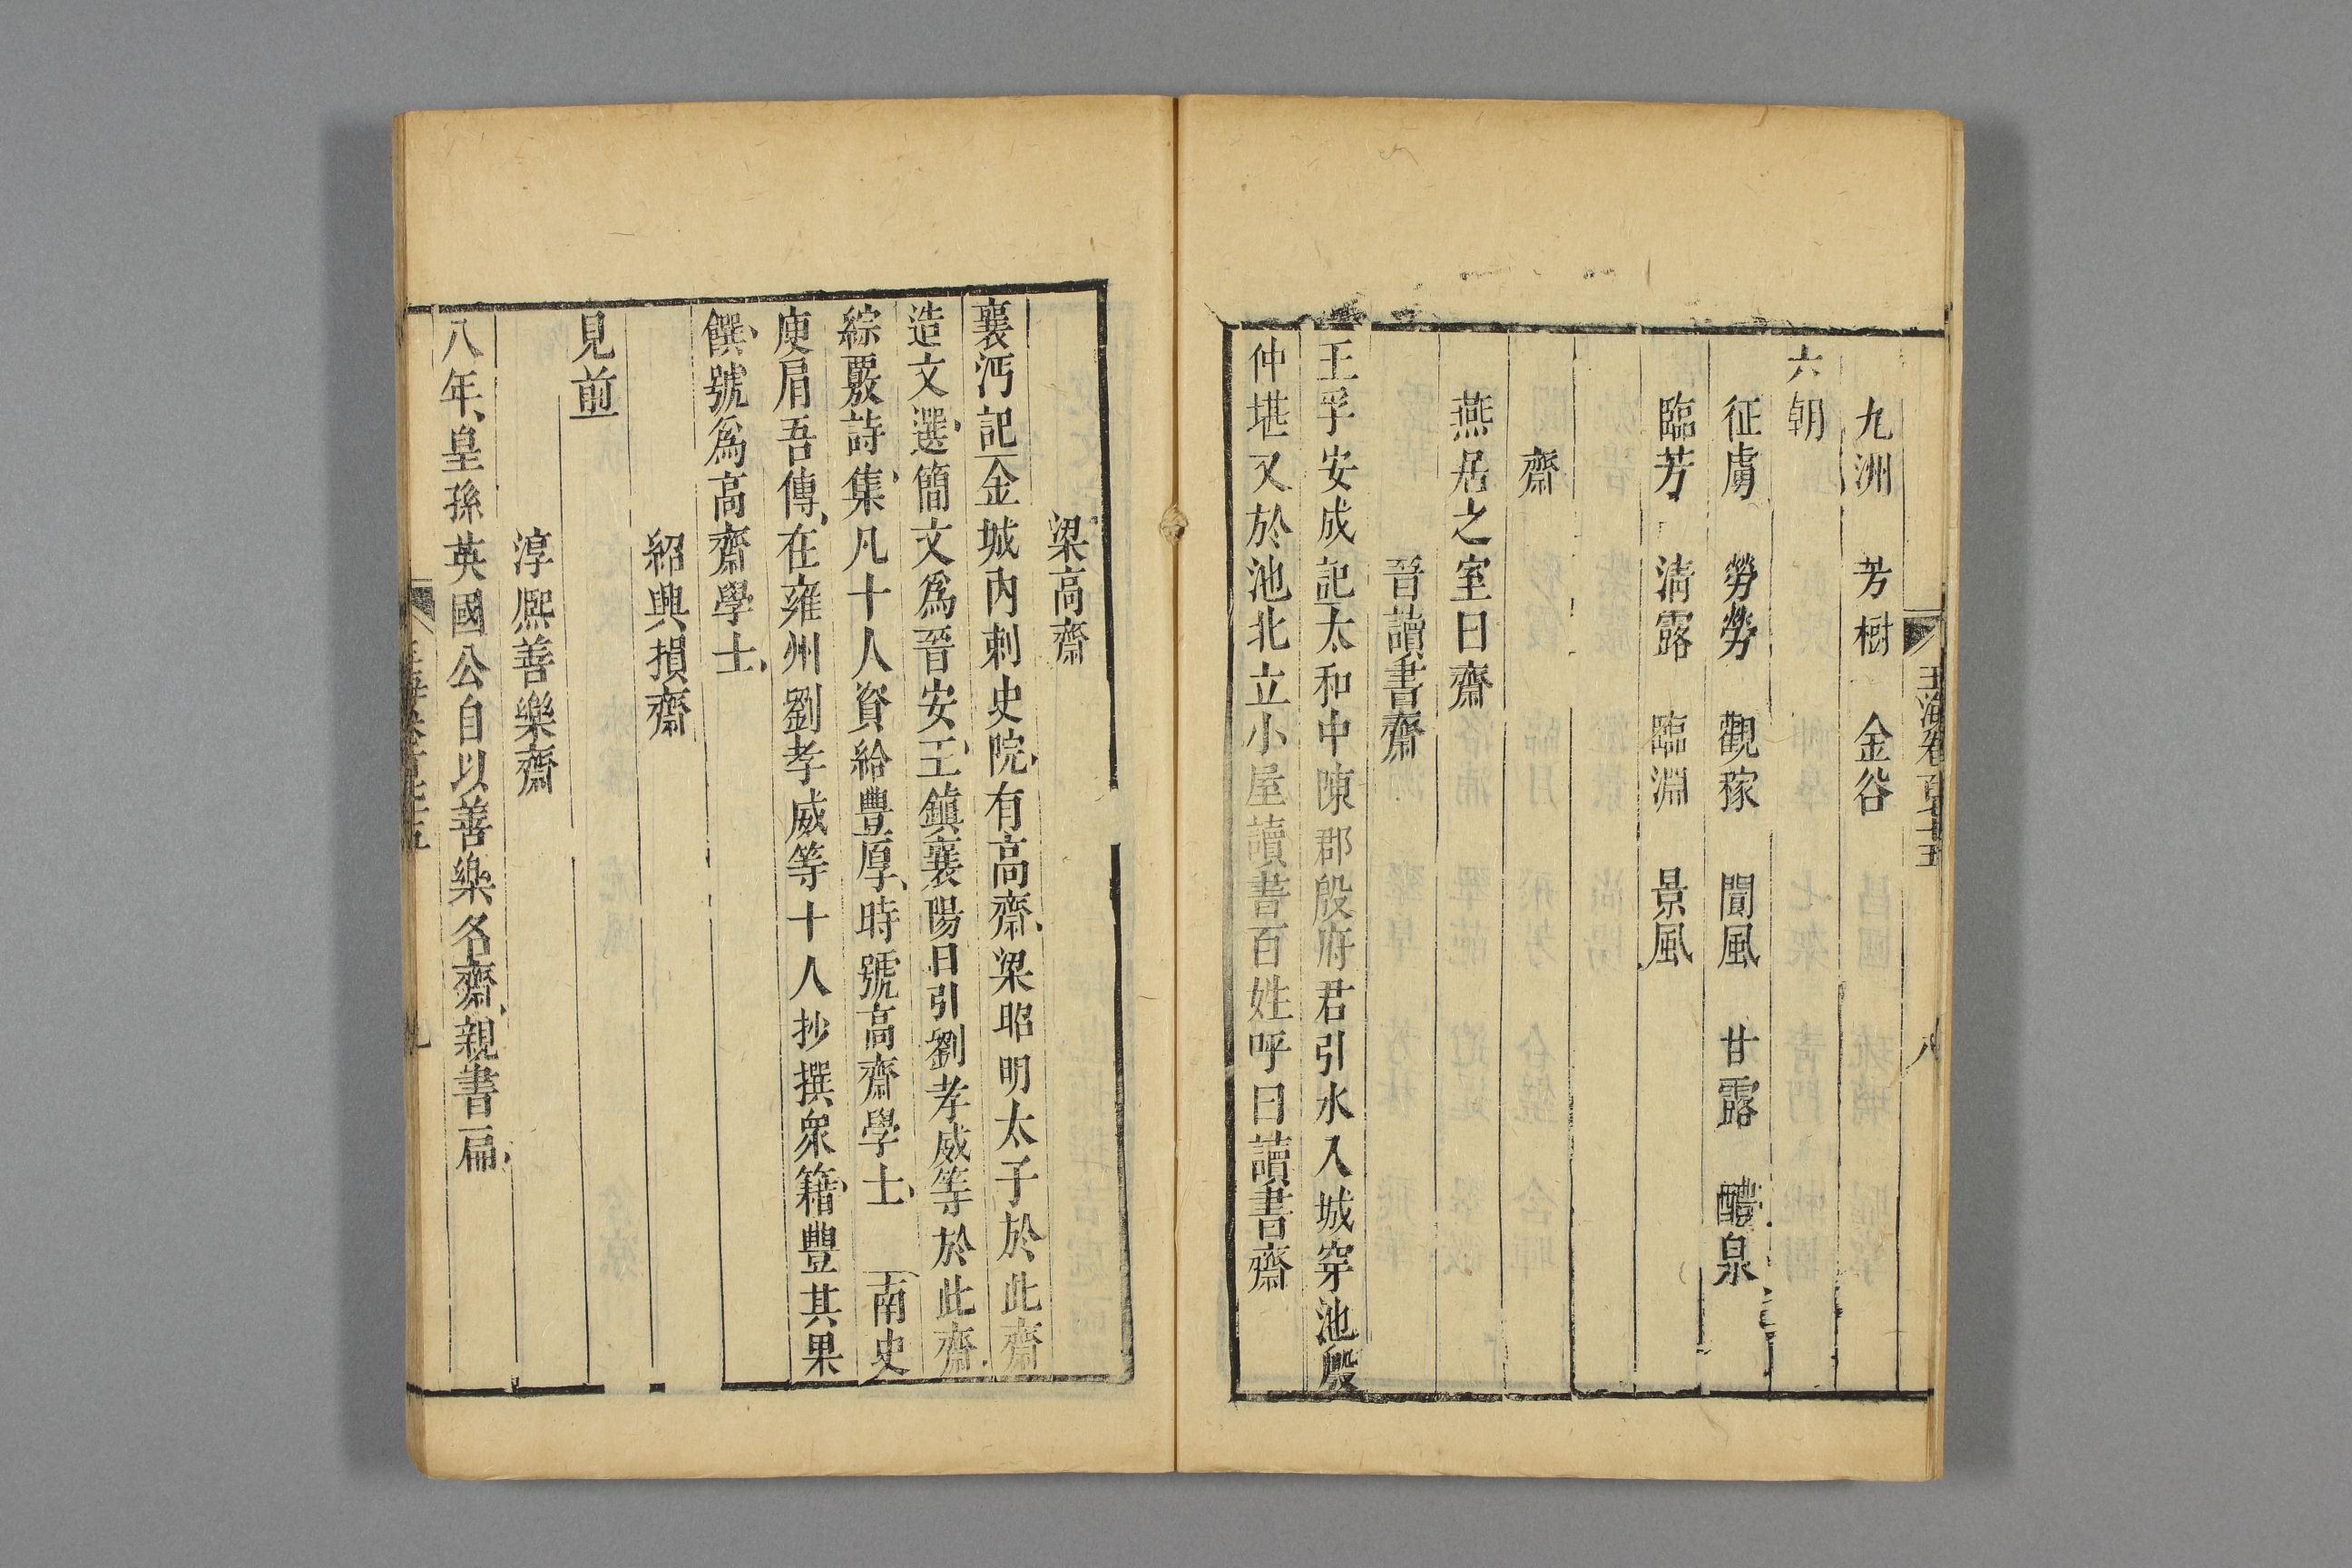 玉海卷百七十五 八
九洲 芳樹 金谷
六朝
征虜 勞勞 觀稼 閶風 甘露 醴泉
臨芳 清露 臨淵 景風
齋
燕居之室曰齋
晉讀書齋
王孚安成記太和中陳郡殷府君引水入城穿池殷
仲堪又於池北立小屋讀書百姓呼曰讀書齋
梁高齋
襄沔記金城內刺史院有高齋梁昭明太子於此齋
造文選簡文為晉安王鎮襄陽日引劉孝威等於此齋
綜覈詩集凡十人資給豐厚時號高齋學士 南史
庾肩吾傳在雍州劉孝威等十人抄撰眾籍豐其果
饌號為高齋學士
紹興損齋
見前
淳熙善樂齋
八年皇孫英國公自以善樂名齋親書扁